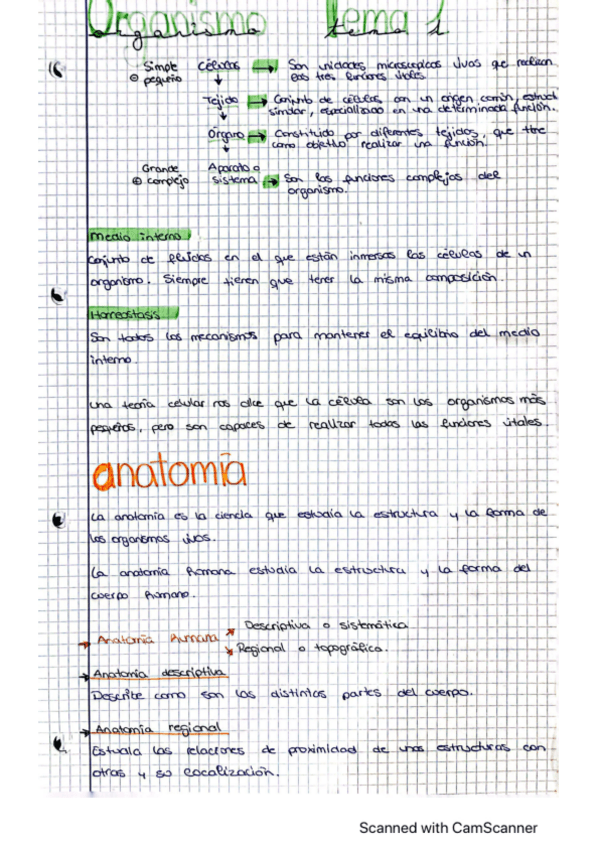 Organismo tema 1
Simple ⊖ pequeño
Células → Son unidades microscopicas vivas que realizan
las tres funciones vitales.
Tejido → Conjunto de células con un origen común, estruct
similar, especializado en una determinada función.
Órgano → Constituido por diferentes tejidos, que tine
como objetivo realizar una función.
Grande ⊕ complejo
Aparato o sistema → Son las funciones complejas del
organismo.
Medio interno
Conjunto de fluidos en el que están inmersas las células de un
organismo. Siempre tienen que tener la misma composición.
Homeostasis
Son todos los mecanismos para mantener el equilibrio del medio
interno.
Una teoría celular nos dice que la célula son los organismos más
pequeños, pero son capaces de realizar todas las funciones vitales.
anatomía
La anatomía es la ciencia que estudia la estructura y la forma de
los organismos vivos.
La anatomía humana estudia la estructura y la forma del
cuerpo humano.
→ Anatomía humana
Descriptiva o sistemática
Regional o topográfica.
→ Anatomía descriptiva
Describe como son las distintas partes del cuerpo.
→ Anatomía regional
Estudia las relaciones de proximidad de unas estructuras con
otras y su localización.
Scanned with CamScanner